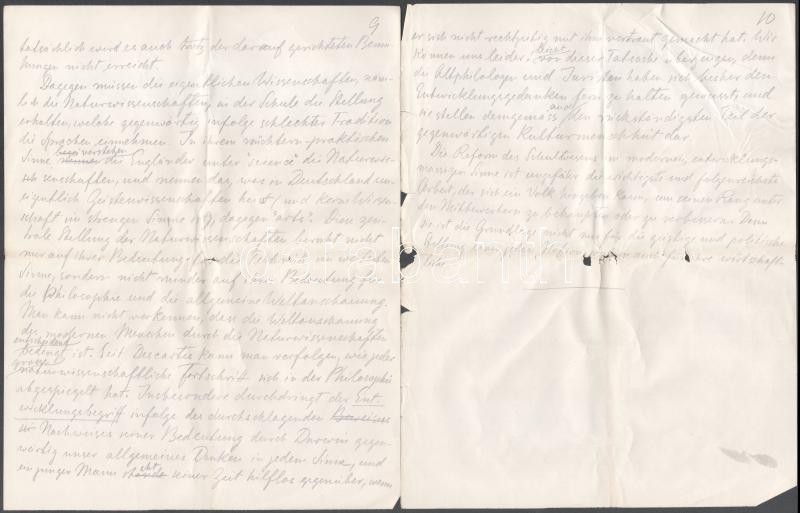 9
tatsächlich wird es auch trotz der darauf gerichteten Bemü-
hungen nicht erreicht.
Dagegen müssen die eigentlichen Wissenschaften, näm-
lich die Naturwissenschaften, in der Schule die Stellung
erhalten, welche gegenwärtig infolge schlechter Tradition
die Sprachen einnehmen. In ihrem nüchtern-praktischen
verstehen
Sinne die Engländer unter "science" die Naturwis-
senschaften, und nennen das, was in Deutschland un-
eigentlich Geisteswissenschaften heisst (und keine Wissen-
schaft im strengen Sinne ist), dagegen "arts". Diese zen-
trale Stellung der Naturwissenschaften beruht nicht
nur auf ihrer Bedeutung für die Technik im weitesten
Sinne, sondern nicht minder auf ihrer Bedeutung für
die Philosophie und die allgemeine Weltanschauung.
Man kann nicht verkennen, dass die Weltanschauung
des modernen Menschen durch die Naturwissenschaften
entscheidend
bedingt ist. Seit Descartes kann man verfolgen, wie jeder
grosse
naturwissenschaftliche Fortschritt sich in der Philosophie
abgespiegelt hat. Insbesondere durchdringt der Ent-
wicklungsbegriff infolge des durchschlagenden Beweises
Nachweises seiner Bedeutung durch Darwin gegen-
wärtig unser allgemeines Denken in jedem Sinne, und
ein junger Mann steht seiner Zeit hilflos gegenüber, wenn
10
er sich nicht rechtzeitig mit ihm vertraut gemacht hat. Wir
können uns leider von dieser Tatsache überzeugen, denn
die Altphilologen und Juristen haben sich bisher den
Entwicklungsgedanken fern zu halten gewusst, und
und
sie stellen demgemäss den rückständigsten Teil der
gegenwärtigen Kulturmenschheit dar.
Die Reform des Schulwesens im modernen, entwicklungs-
mässigen Sinne ist ungefähr die wichtigste und folgenreichste
Arbeit, der sich ein Volk hingeben kann, um seinen Rang unter
den Mitbewerbern zu behaupten oder zu verbessern. Denn
sie ist die Grundlage nicht nur für die geistige und politische
Stellung wirtschaft-
liche